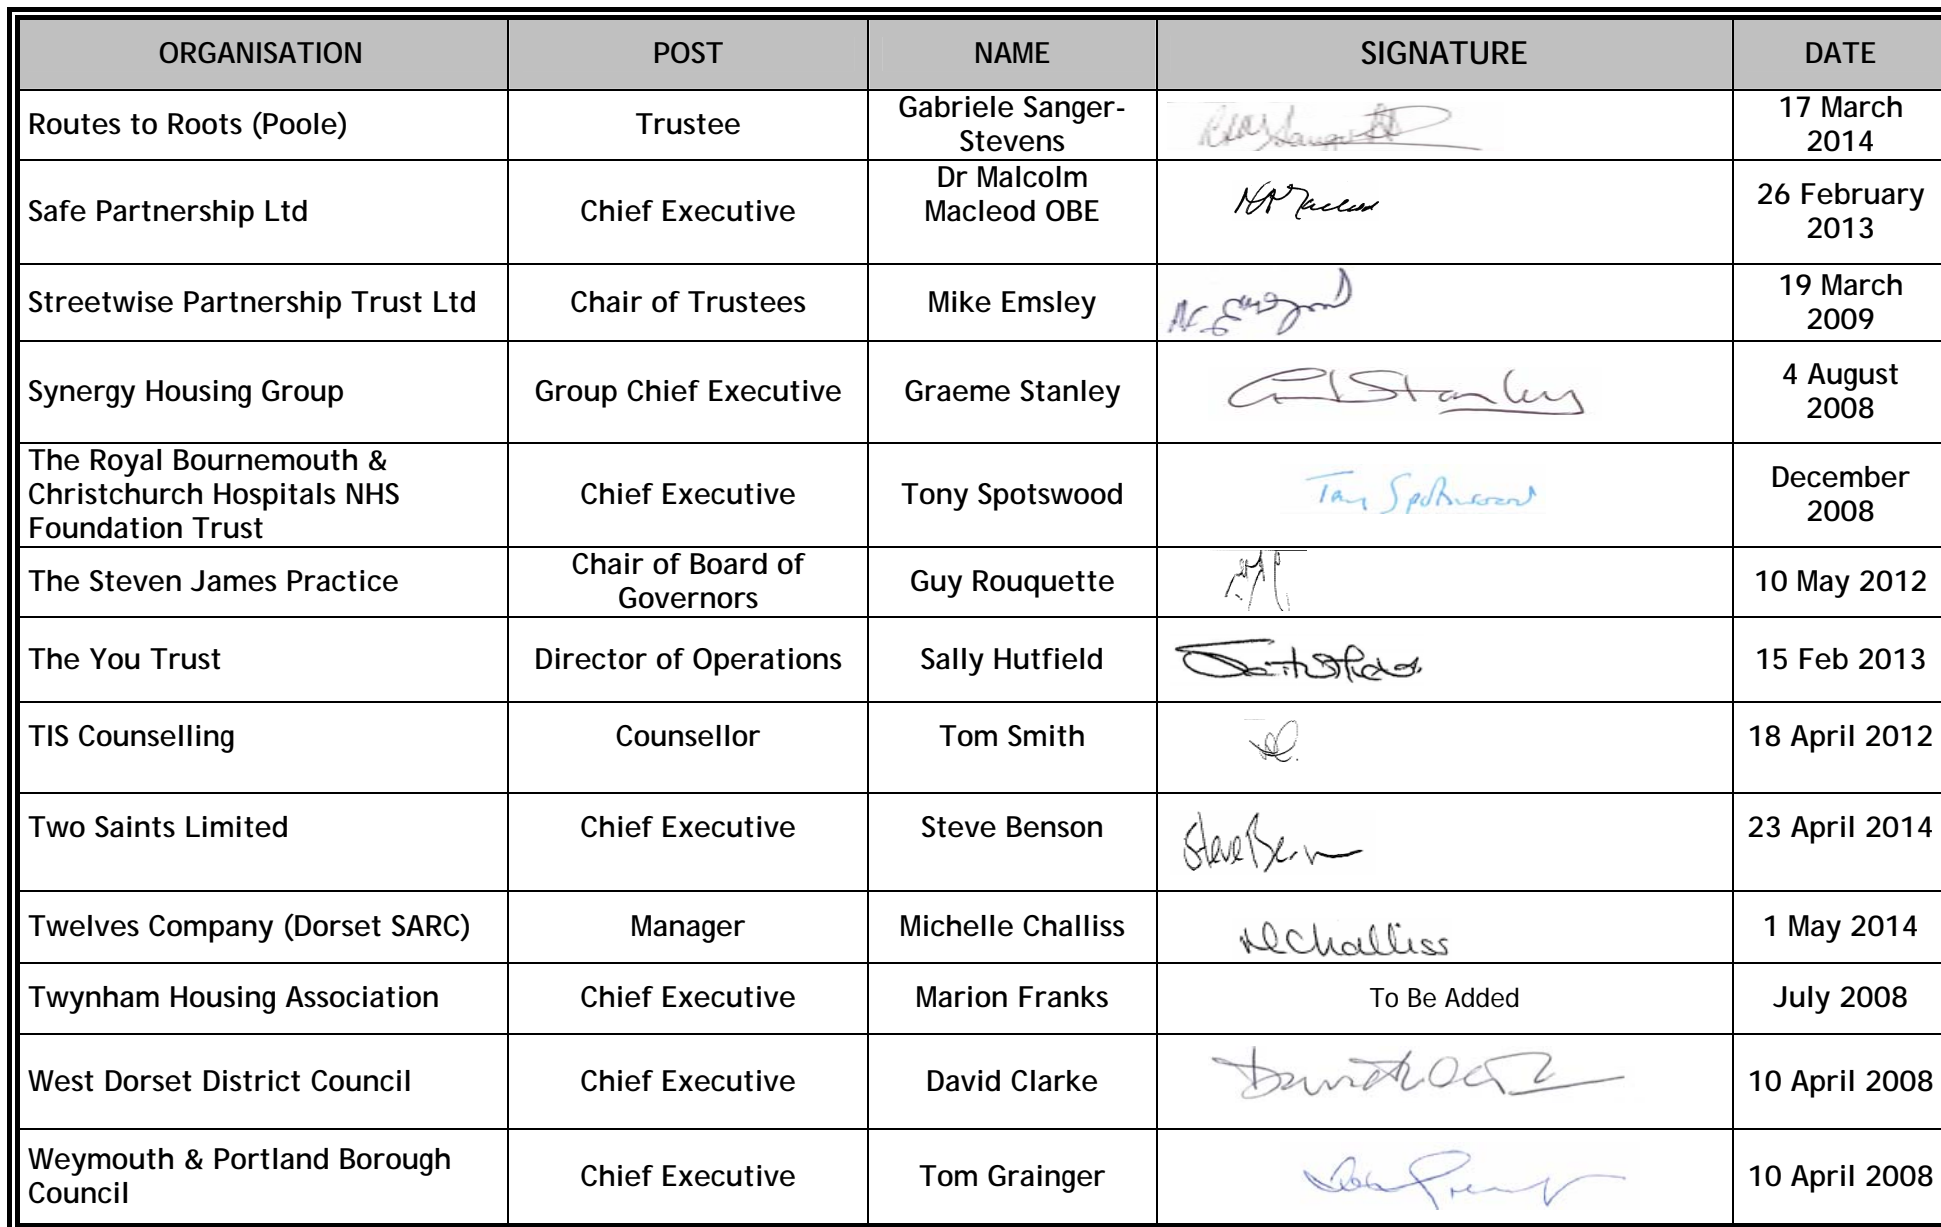 ORGANISATION POST NAME SIGNATURE DATE
Routes to Roots (Poole) Trustee Gabriele Sanger-
Stevens 17 March
2014
Safe Partnership Ltd Chief Executive Dr Malcolm
Macleod OBE 26 February
2013
Streetwise Partnership Trust Ltd Chair of Trustees Mike Emsley 19 March
2009
Synergy Housing Group Group Chief Executive Graeme Stanley Stanley 4 August
2008
The Royal Bournemouth &
Christchurch Hospitals NHS
Foundation Trust Chief Executive Tony Spotswood Tony Spotswood December
2008
The Steven James Practice Chair of Board of
Governors Guy Rouquette 10 May 2012
The You Trust Director of Operations Sally Hutfield 15 Feb 2013
TIS Counselling Counsellor Tom Smith 18 April 2012
Two Saints Limited Chief Executive Steve Benson Steve Benson 23 April 2014
Twelves Company (Dorset SARC) Manager Michelle Challiss MChalliss 1 May 2014
Twynham Housing Association Chief Executive Marion Franks To Be Added July 2008
West Dorset District Council Chief Executive David Clarke 10 April 2008
Weymouth & Portland Borough
Council Chief Executive Tom Grainger 10 April 2008